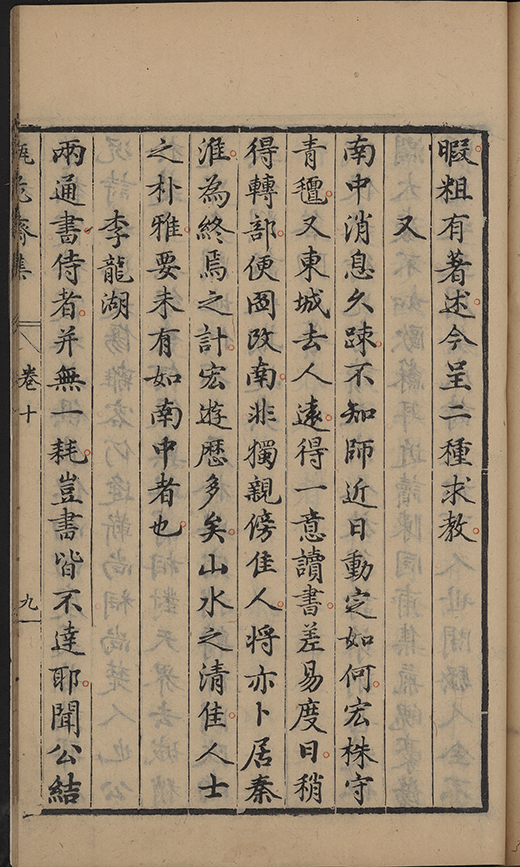 暇粗有著述今呈二種求教
又
南中消息久踈不知師近日動定如何宏株守
青氊又東城去人遠得一意讀書差易度日稍
得轉部便圖改南非獨親傍佳人將亦卜居秦
淮為終焉之計宏遊歷多矣山水之清佳人士
之朴雅要未有如南中者也
李龍湖
兩通書侍者并無一耗豈書皆不達耶聞公結
卷十
九